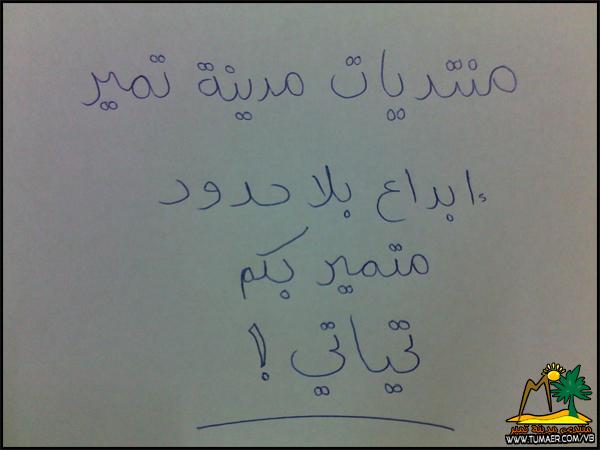 منتديات مدينة تمير
ءابداع بلا حدود
متمير بكم
تياتي !
منتدى مدينة تمير
WWW.TUMAER.COM/VB